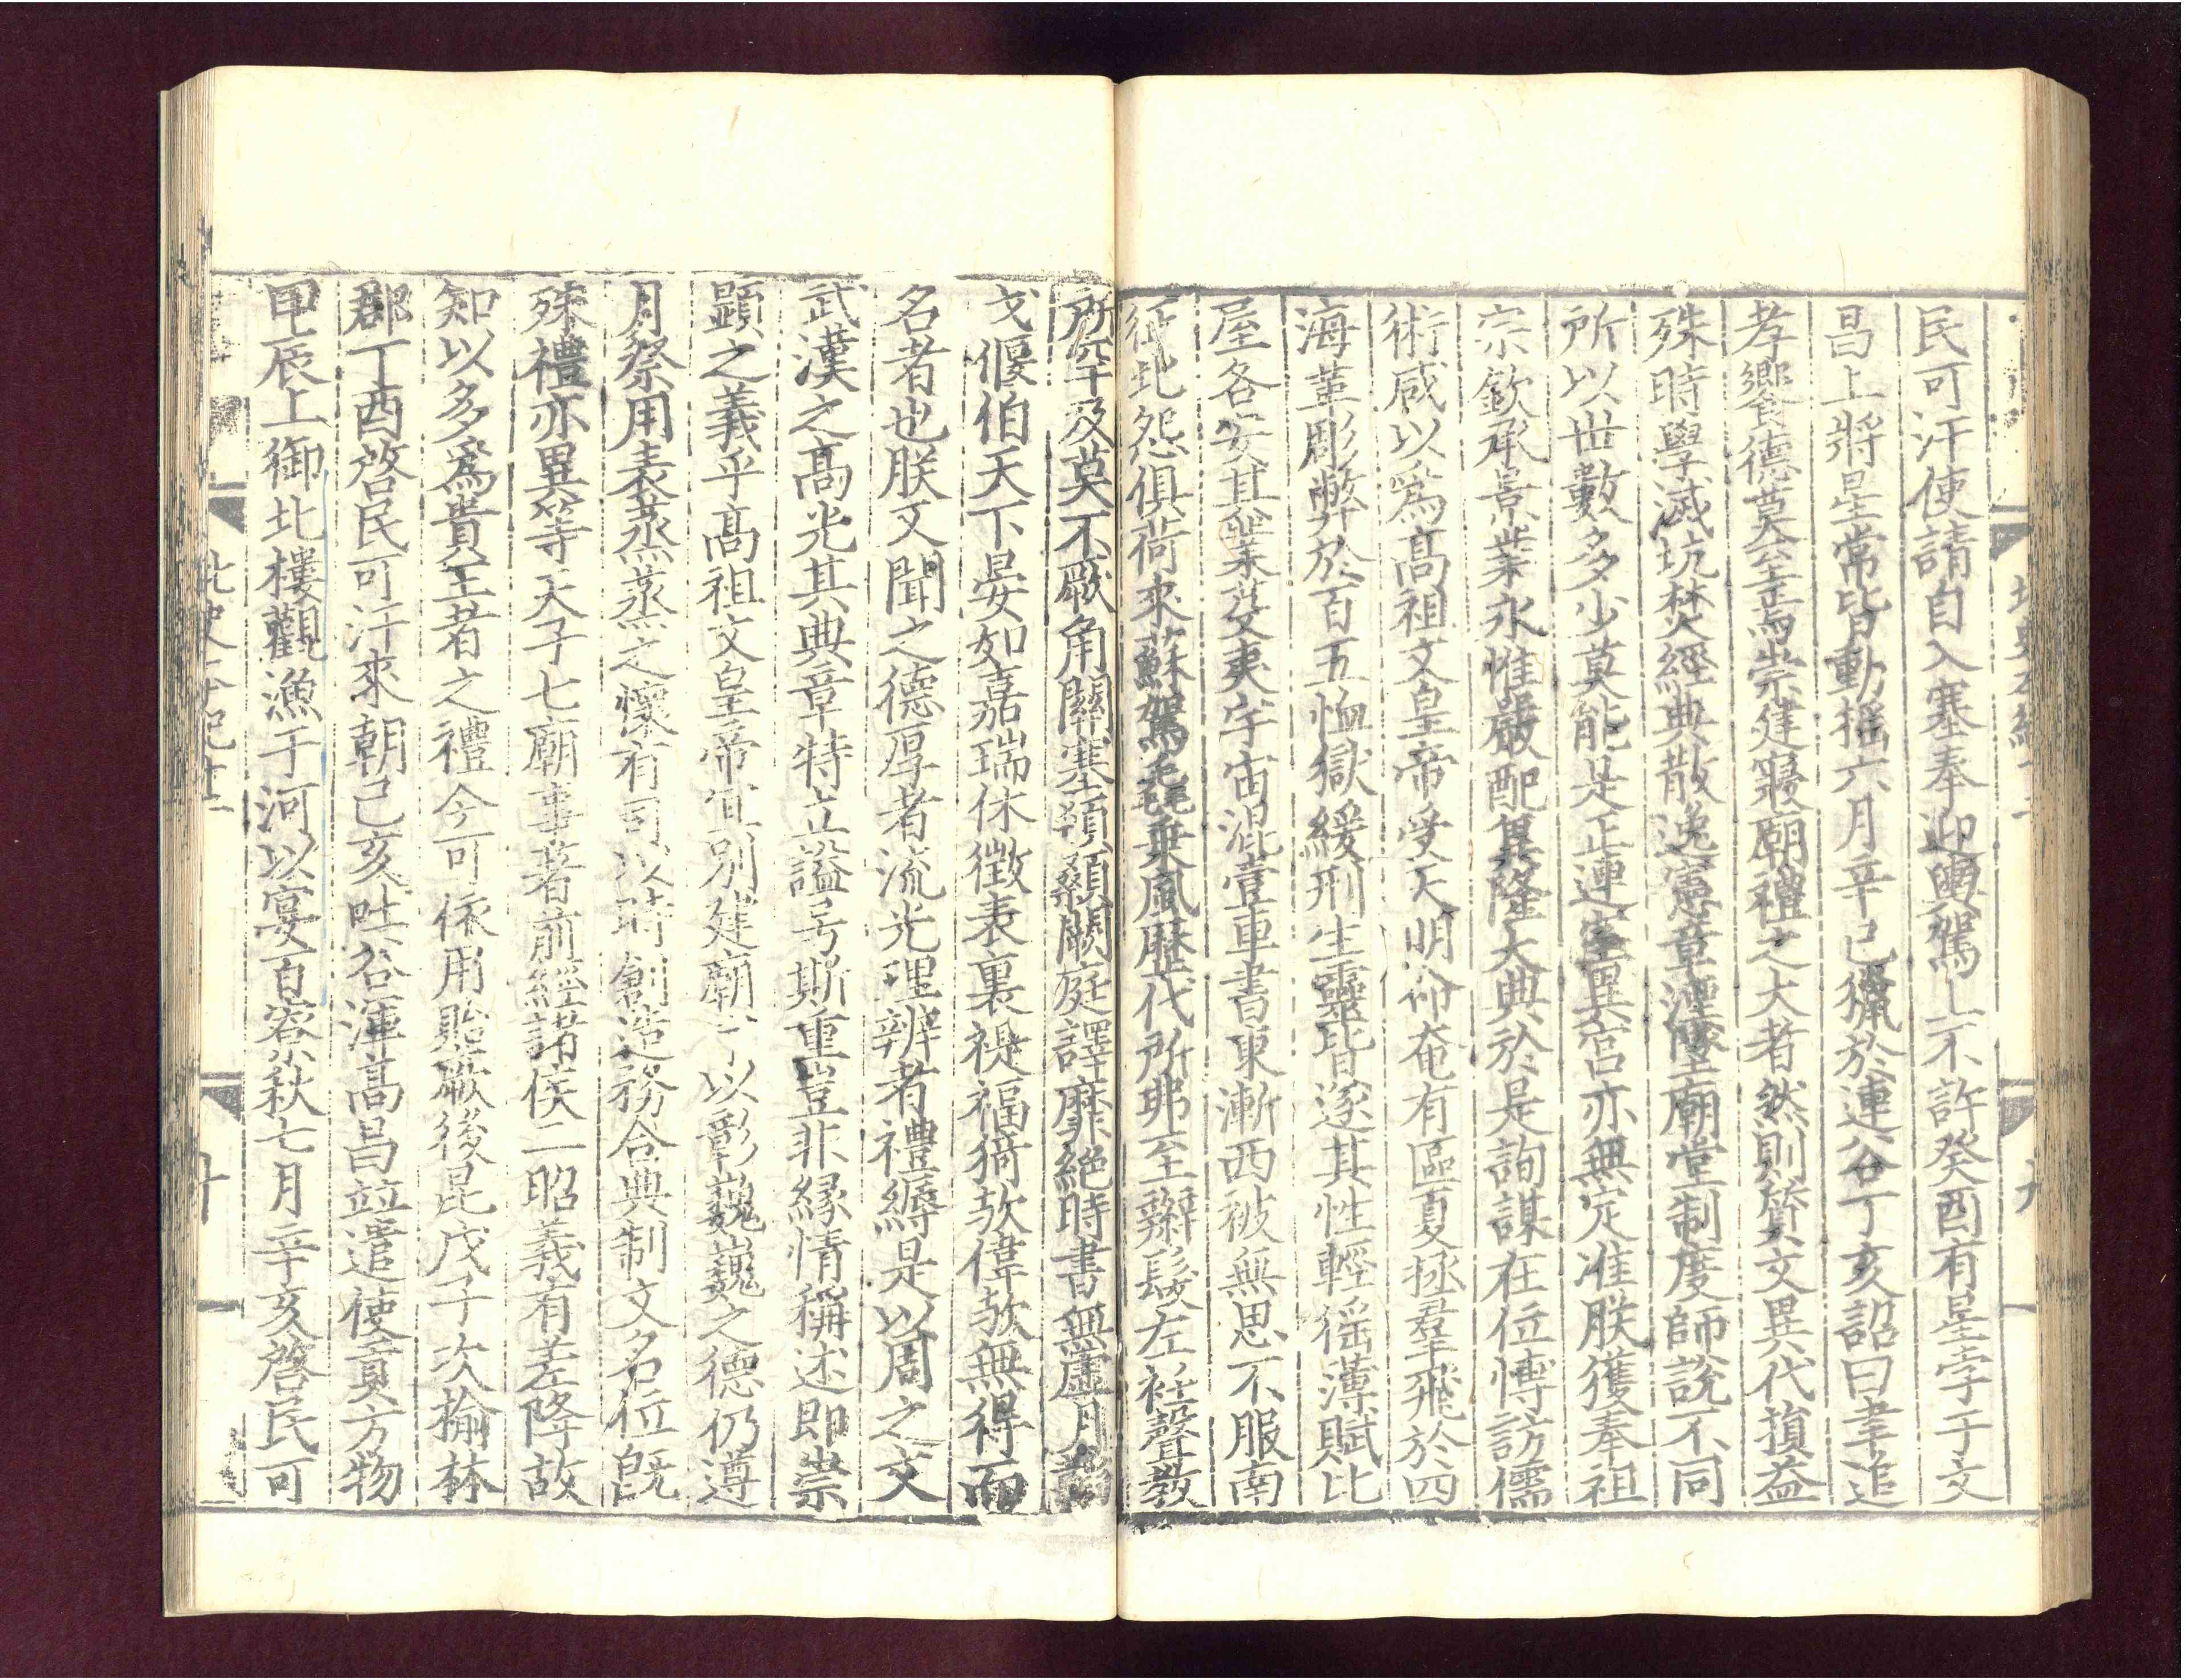 民可汗使請自入塞奉迎輿駕上不許癸酉有星孛于文
昌上將星常皆動搖六月辛巳獵於連谷丁亥詔曰聿追
孝饗德莫至焉崇建寢廟禮之大者然則質文異代損益
殊時學滅坑焚經典散逸憲章湮墜廟堂制度師說不同
所以世數多少莫能是正連室異宮亦無定准朕獲奉祖
宗欽承景業永惟嚴配冀隆大典於是詢謀在位博訪儒
術咸以爲髙祖文皇帝受天明命奄有區夏拯羣飛於四
海革彫弊於百王恤獄緩刑生靈皆遂其性輕徭薄賦比
屋各安其業芟夷宇宙混壹車書東漸西被無思不服南
征北怨俱荷來蘇駕毳乗風歷代所弗至辮髮左衽聲教
所罕及莫不厥角關塞頓顙闕庭譯靡絕時書無虛月韜
戈偃伯天下晏如嘉瑞休徵表裏禔福猗歟偉歟無得而
名者也朕又聞之德厚者流光理辨者禮縟是以周之文
武漢之髙光其典章特立謚号斯重豈非緣情稱述即崇
顯之義乎髙祖文皇帝宜別建廟宇以彰巍巍之德仍遵
月祭用表蒸蒸之懷有司以時創造務合典制又名位旣
殊禮亦異等天子七廟事著前經諸侯二昭義有差降故
知以多爲貴王者之禮今可依用貽厥後昆戊子次榆林
郡丁酉啓民可汗來朝己亥吐谷渾髙昌竝遣使貢方物
甲辰上御北樓觀漁于河以宴百寮秋七月辛亥啓民可
北史本紀十二
十